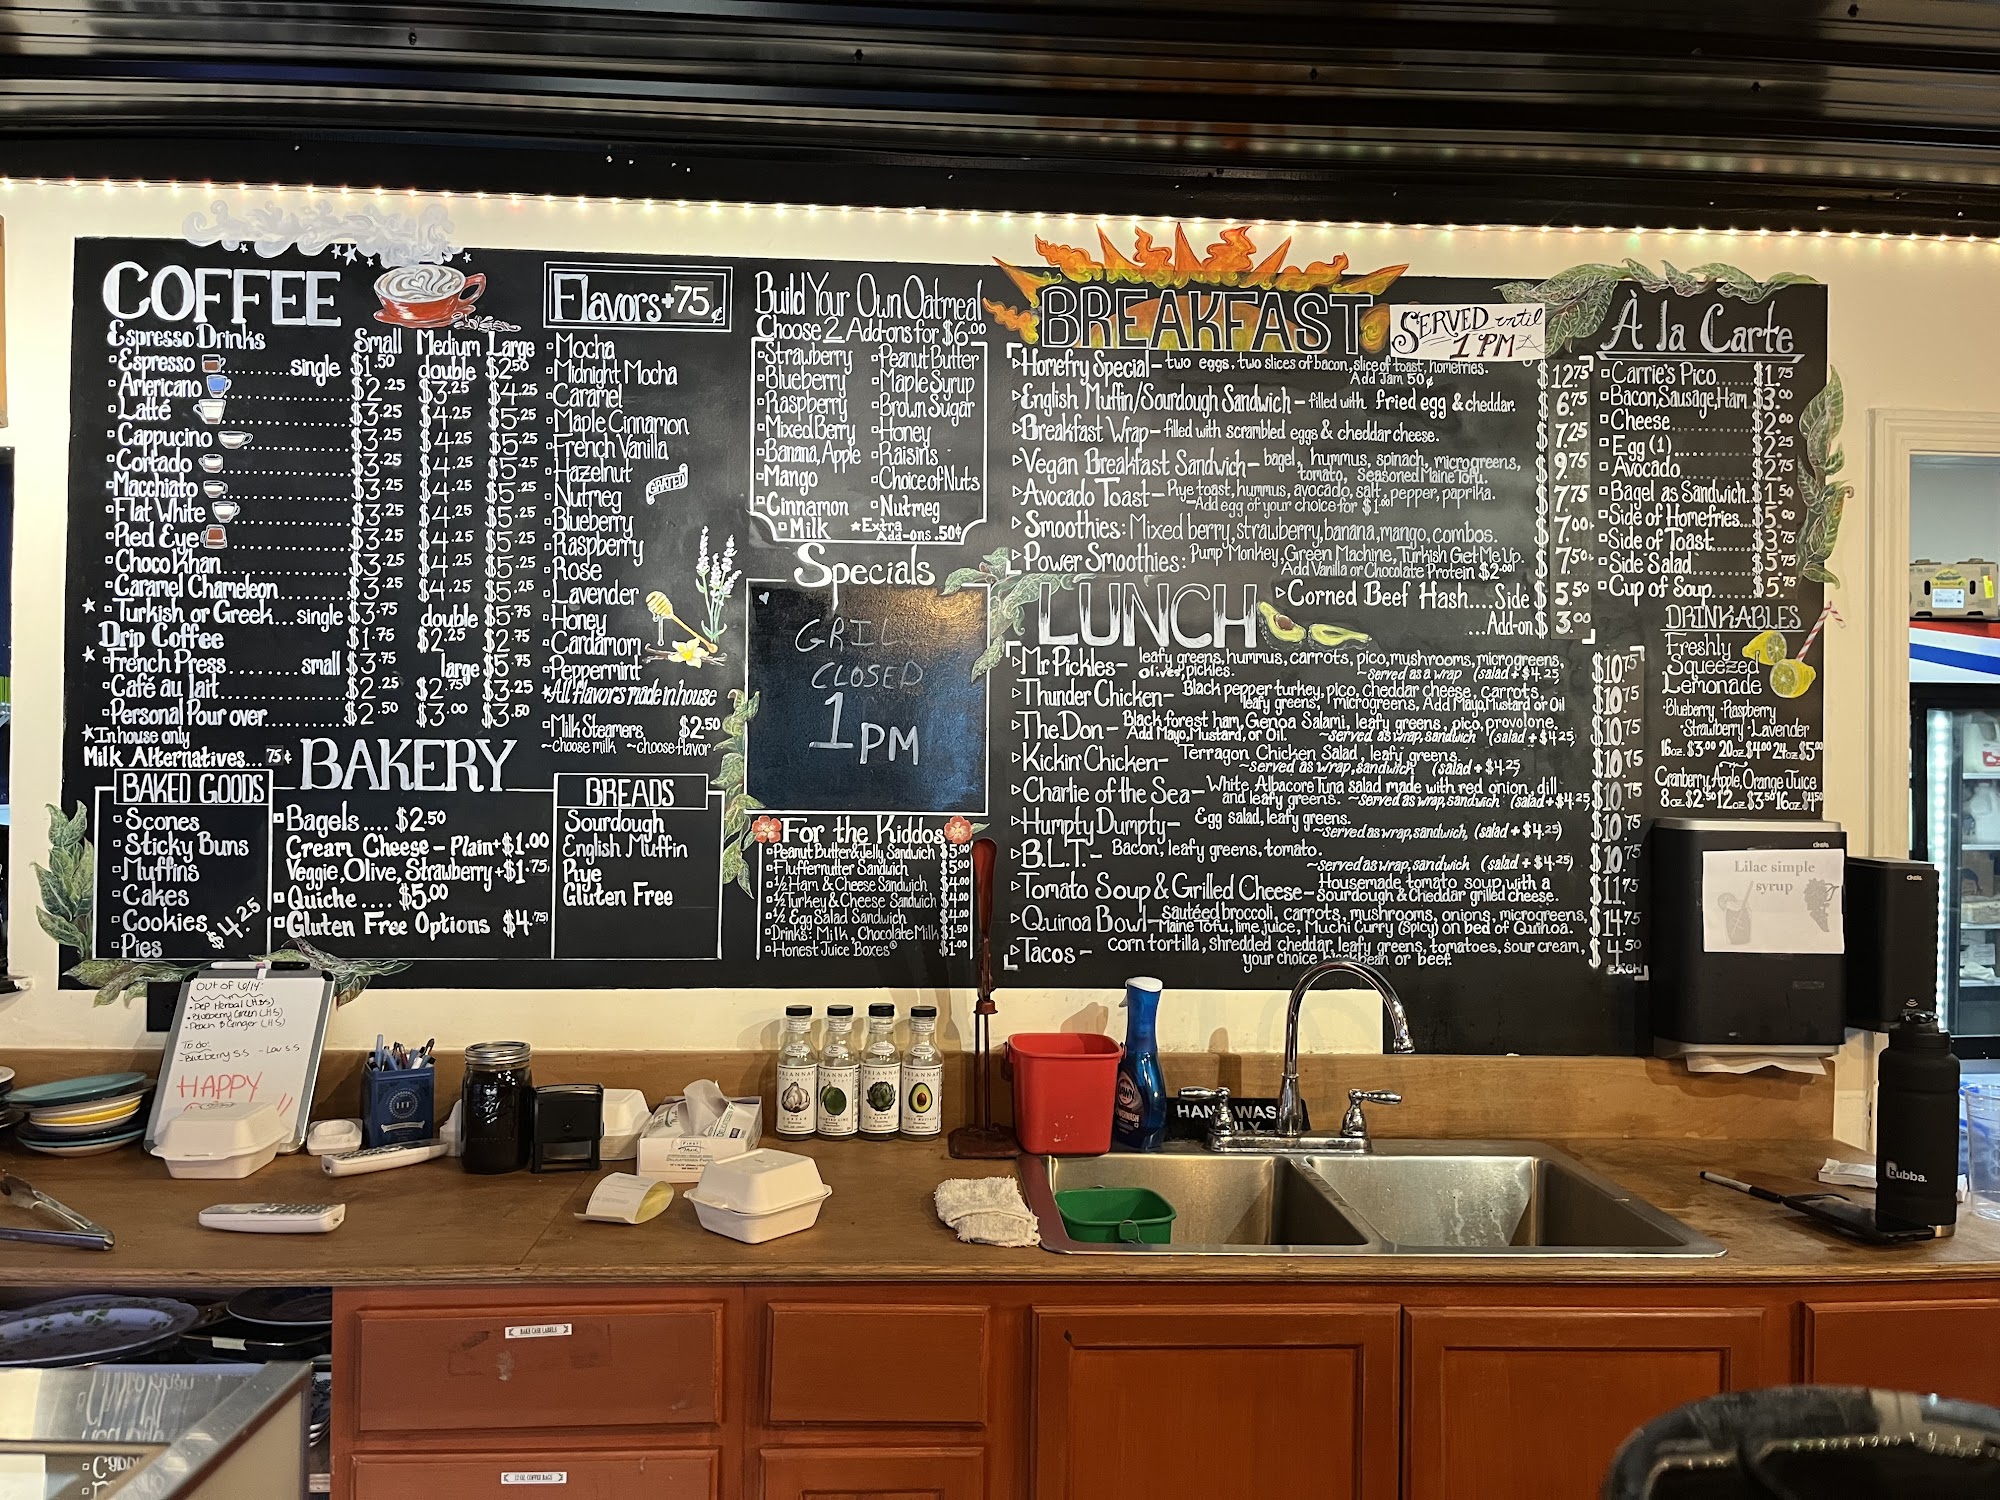 COFFEE
Espresso Drinks Small Medium Large
Espresso single $1.50 double $2.50
Americano $2.25 $3.25 $4.25
Latté $3.25 $4.25 $5.25
Cappucino $3.25 $4.25 $5.25
Cortado $3.25 $4.25 $5.25
Macchiato $3.25 $4.25 $5.25
Flat White $3.25 $4.25 $5.25
Red Eye $3.25 $4.25 $5.25
Choco Khan $3.25 $4.25 $5.25
Caramel Chameleon $3.25 $4.25 $5.25
Turkish or Greek... single $3.75 double $5.75
Drip Coffee $1.75 $2.25 $2.75
French Press small $3.75 large $5.75
Café au lait $2.25 $2.75 $3.25
Personal Pour over $2.50 $3.00 $3.50
*In house only
Milk Alternatives... 75¢
Flavors +75¢
Mocha
Midnight Mocha
Caramel
Maple Cinnamon
French Vanilla
Hazelnut
Nutmeg
Blueberry
Raspberry
Rose
Lavender
Honey
Cardamom
Peppermint
*All flavors made in house
Milk Steamers $2.50
~choose milk ~choose flavor
BAKERY
BAKED GOODS
Scones
Sticky Buns
Muffins
Cakes
Cookies
Pies
$4.25
Bagels .... $2.50
Cream Cheese - Plain +$1.00
Veggie, Olive, Strawberry +$1.75
Quiche .... $5.00
Gluten Free Options $4.75
BREADS
Sourdough
English Muffin
Rye
Gluten Free
Build Your Own Oatmeal
Choose 2 Add-ons for $6.00
Strawberry Peanut Butter
Blueberry Maple Syrup
Raspberry Brown Sugar
Mixed Berry Honey
Banana, Apple Raisins
Mango Choice of Nuts
Cinnamon Nutmeg
Milk *Extra Add-ons .50¢
Specials
GRILL
CLOSED
1 PM
For the Kiddos
Peanut Butter & Jelly Sandwich $5.00
Fluffernutter Sandwich $5.00
½ Ham & Cheese Sandwich $4.00
½ Turkey & Cheese Sandwich $4.00
½ Egg Salad Sandwich $4.00
Drinks: Milk, Chocolate Milk $1.50
Honest Juice Boxes $1.00
BREAKFAST
SERVED until
1 PM
Homefry Special - two eggs, two slices of bacon, slice of toast, homefries. $12.75
Add Jam 50¢
English Muffin/Sourdough Sandwich - filled with fried egg & cheddar. $6.75
Breakfast Wrap - filled with scrambled eggs & cheddar cheese. $7.25
Vegan Breakfast Sandwich - bagel, hummus, spinach, microgreens, $9.75
tomato, Seasoned Maine Tofu.
Avocado Toast - Rye toast, hummus, avocado, salt, pepper, paprika. $7.75
-Add egg of your choice for $1.00
Smoothies: Mixed berry, strawberry, banana, mango, combos. $7.00
Power Smoothies: Pump Monkey, Green Machine, Turkish Get Me Up. $7.50
Add Vanilla or Chocolate Protein $2.00
Corned Beef Hash.... Side $5.50
...Add-on $3.00
LUNCH
Mr. Pickles - leafy greens, hummus, carrots, pico, mushrooms, microgreens, $10.75
olives, pickles. ~served as a wrap (salad + $4.25
Thunder Chicken - Black pepper turkey, pico, cheddar cheese, carrots, $10.75
leafy greens, microgreens, Add Mayo, Mustard or Oil
The Don - Black forest ham, Genoa Salami, leafy greens, pico, provolone. $10.75
Add Mayo, Mustard, or Oil. ~served as wrap, sandwich (salad + $4.25)
Kickin' Chicken - Terragon Chicken Salad, leafy greens. $10.75
~served as wrap, sandwich (salad + $4.25
Charlie of the Sea - White Albacore Tuna salad made with red onion, dill $10.75
and leafy greens. ~served as wrap, sandwich (salad + $4.25
Humpty Dumpty - Egg salad, leafy greens. $10.75
~served as wrap, sandwich, (salad + $4.25)
B.L.T. - Bacon, leafy greens, tomato. $10.75
~served as wrap, sandwich (salad + $4.25)
Tomato Soup & Grilled Cheese - Housemade tomato soup, with a $11.75
Sourdough & Cheddar grilled cheese.
Quinoa Bowl - sautéed broccoli, carrots, mushrooms, onions, microgreens, $14.75
Maine Tofu, lime juice, Muchi Curry (Spicy) on bed of Quinoa.
Tacos - Corn tortilla, shredded cheddar, leafy greens, tomatoes, sour cream, $4.50
your choice blackbean or beef. EACH
À la Carte
Carrie's Pico $1.75
Bacon, Sausage, Ham $3.00
Cheese $2.00
Egg (1) $2.25
Avocado $2.75
Bagel as Sandwich $1.50
Side of Homefries $5.00
Side of Toast $3.75
Side Salad $5.75
Cup of Soup $5.75
DRINKABLES
Freshly
Squeezed
Lemonade
Blueberry Raspberry
Strawberry Lavender
16oz. $3.00 20oz $4.00 24oz $5.00
Cranberry, Apple, Orange Juice
8oz. $2.50 12oz $3.50 16oz $4.50
Lilac simple
syrup
cintas
cintas
OUT OF 6/14:
Blueberry Green (H.S)
Peach & Ginger (H.S)
To do:
HAPPY
BRIANNAS
BRIANNAS
BRIANNAS
BRIANNAS
HAND WASH
ONLY
bubba.
BAKE CASE LABELS
12 OZ. COFFEE BAGS